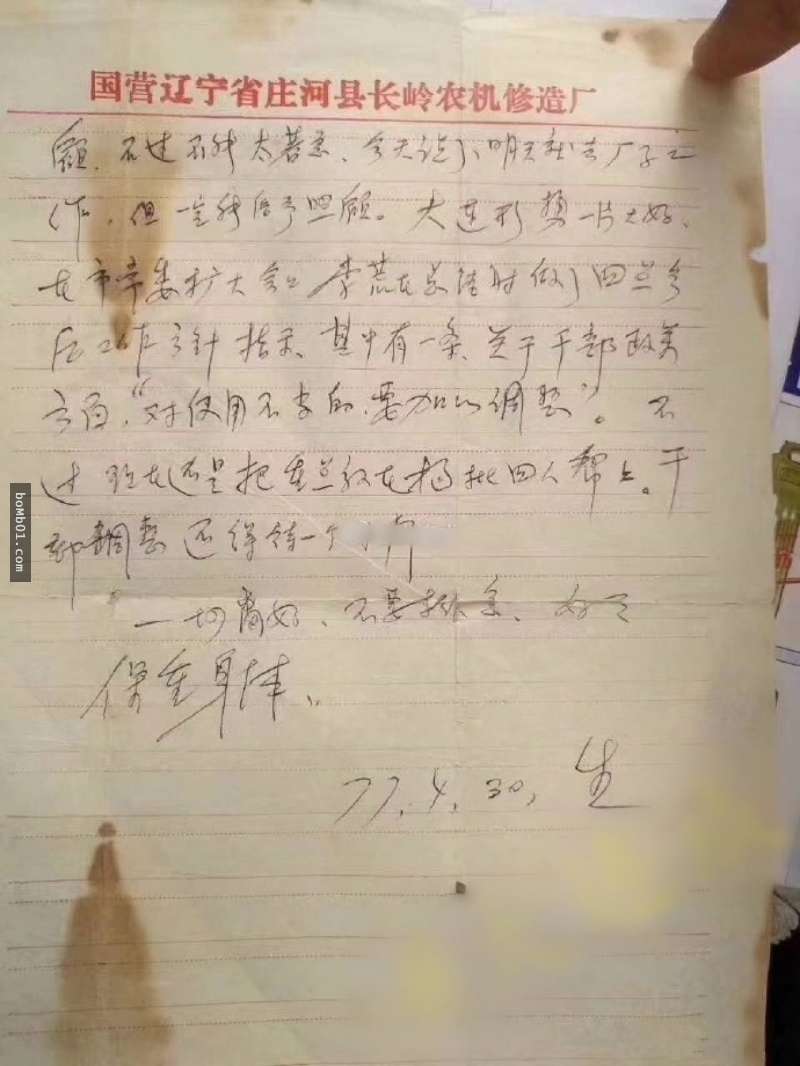 国营辽宁省庄河县长岭农机修造厂
不过不能太着急、今天说了、明天就去厂子工
作，但一定能给予照顾。大连形势一片大好、
在市常委扩大会上 李荒在总结时做了四点今
后工作方针指示、其中有一条、关于干部政策
方面，“对使用不当的，要加以调整”。不
过现在还是把重点放在揭批四人帮上。干
部调整还得待一个
一切都好、不要挂念、好好
保重身体、
77.4.30, 生
boMb01.com